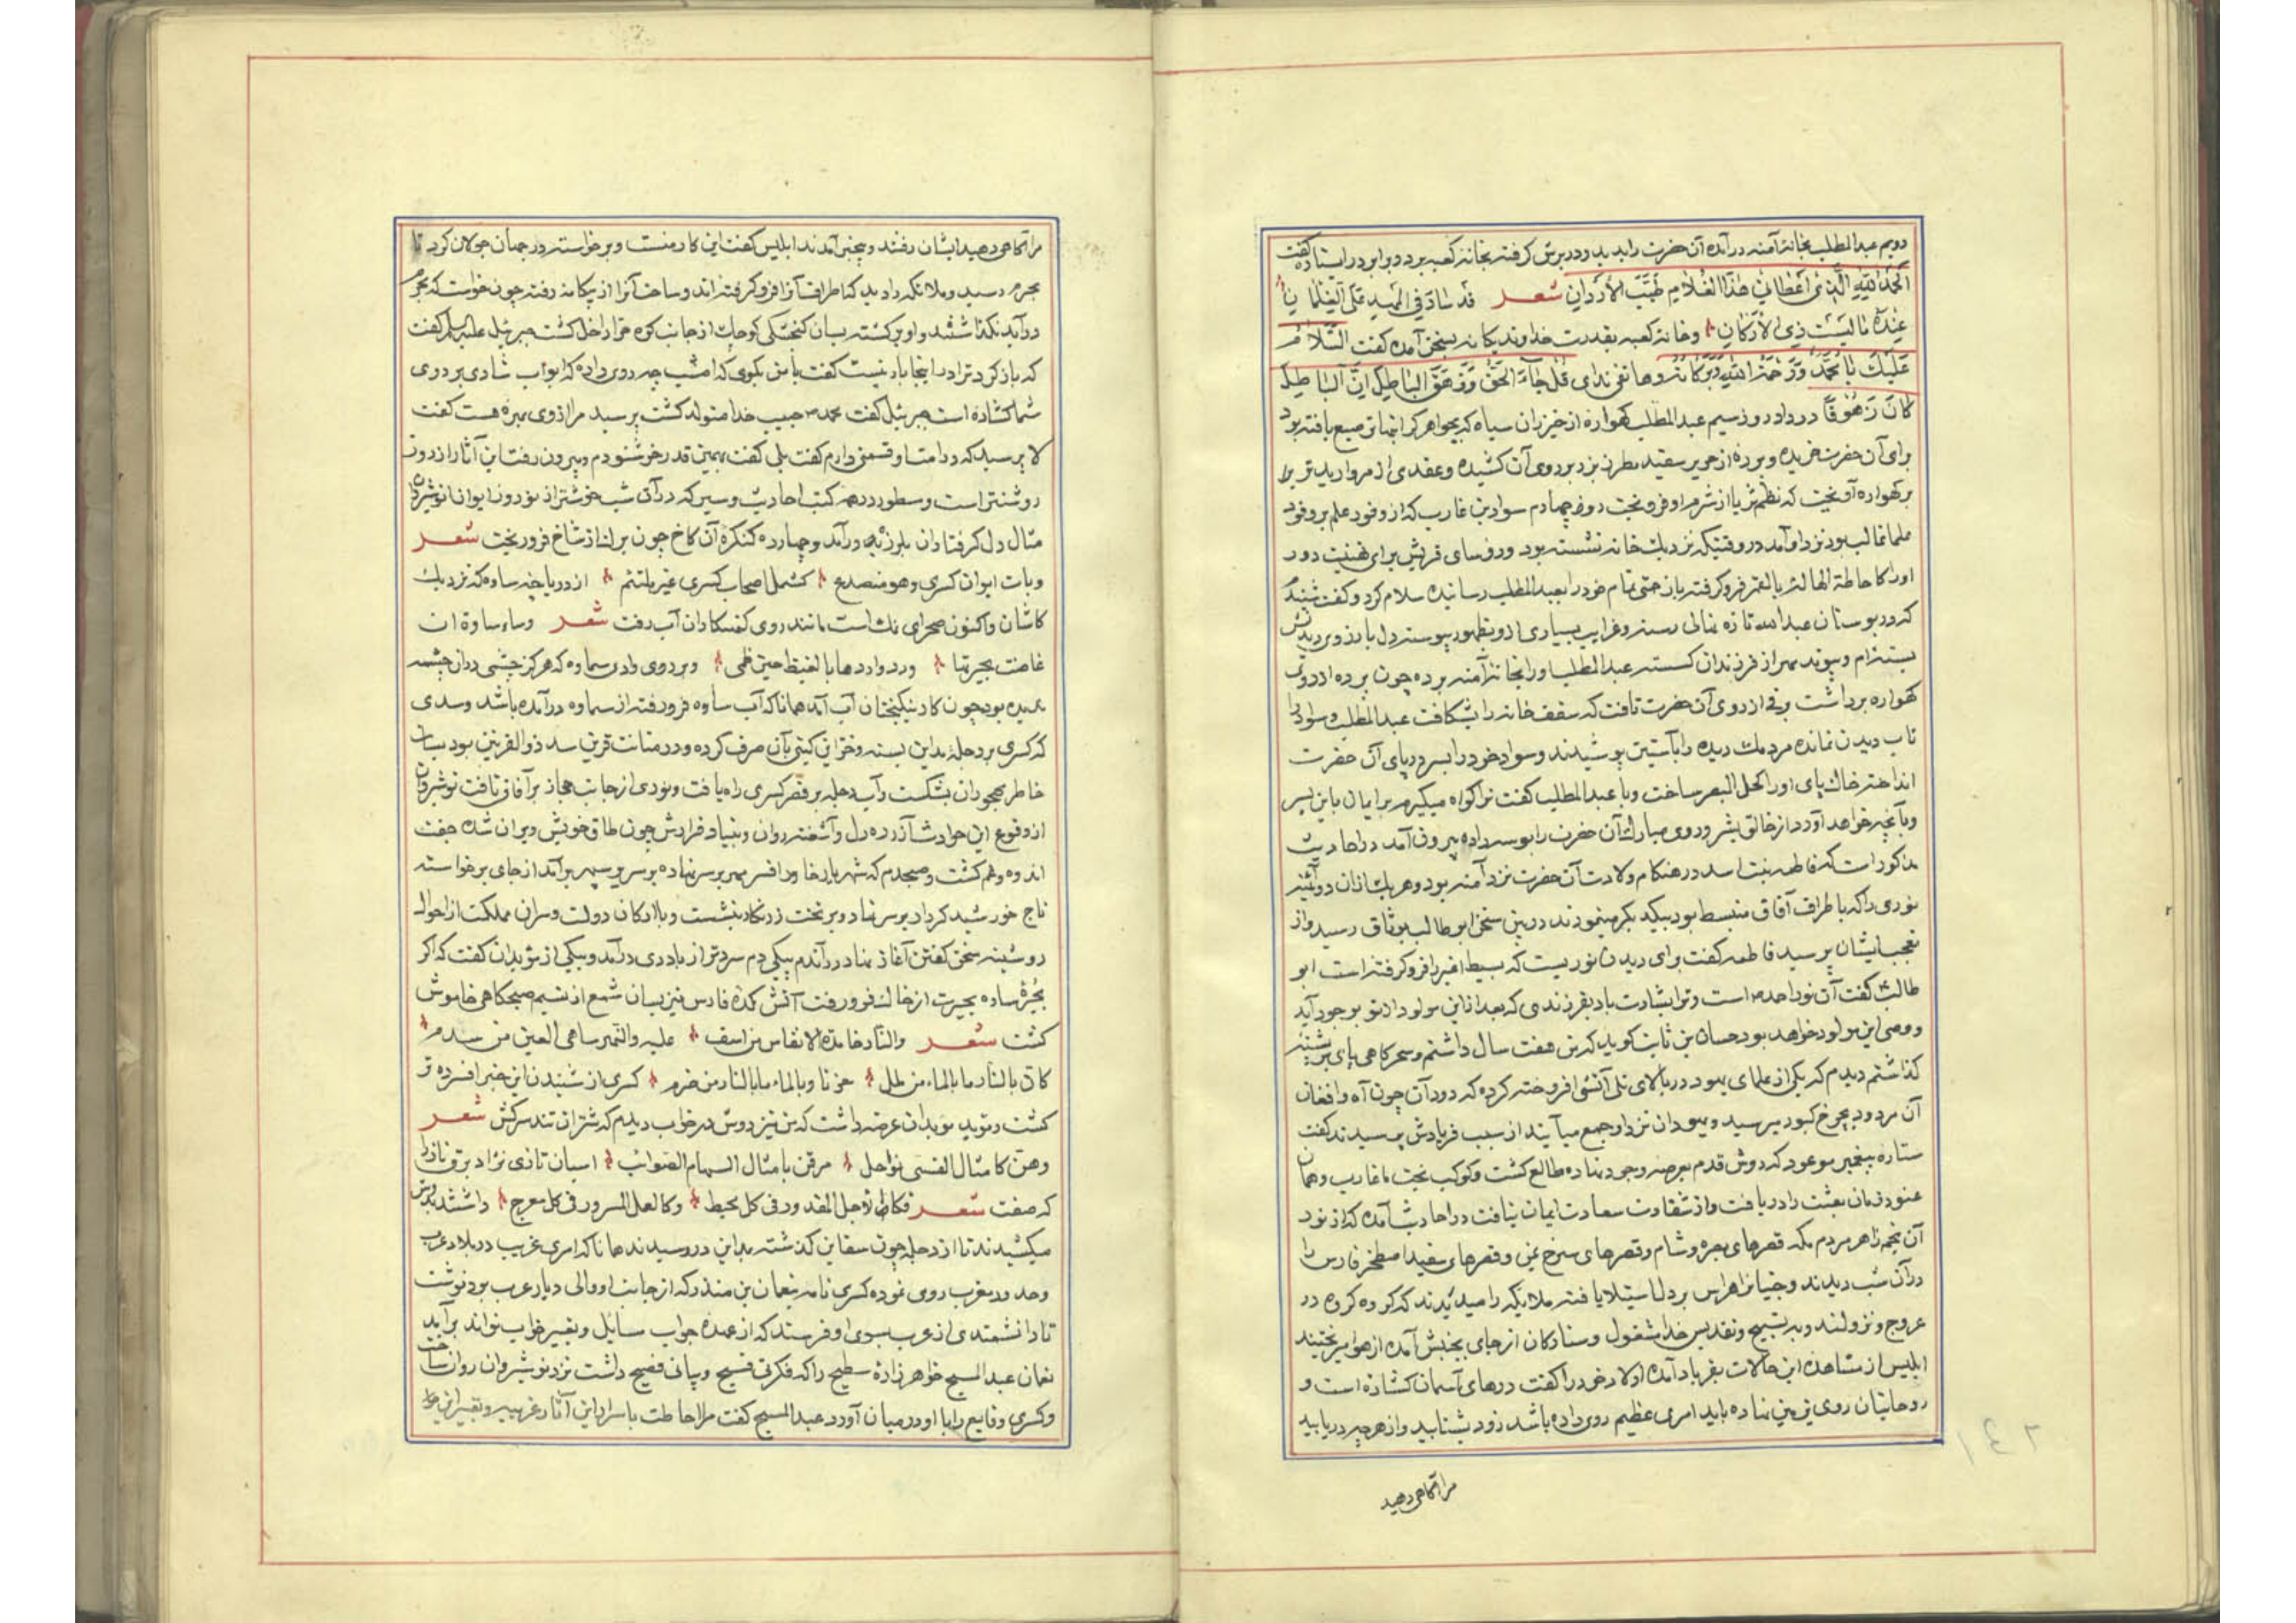 دویم عبدالمطلب بخانهٔ آمنه درآمده آن حضرت را بدید و در برش گرفته بخانه کعبه برد و برابر در ایستاده گفت
اَلْحَمْدُ لِلّٰهِ الَّذِی اَعْطَانِی هٰذَا الْغُلَامَ طَیِّبَ الْاَرْدَانِ شعر قَدْ سَادَ فِی الْمَهْدِ عَلَی الْغِلْمَانِ
وخانه کعبه بقدرت خداوند یکانه بسخن آمده گفت السَّلَامُ
عَلَیْكَ یَا مُحَمَّدُ وَرَحْمَةُ اللّٰهِ وَبَرَکَاتُهُ وهاتفی ندای قُلْ جَآءَ الْحَقُّ وَزَهَقَ الْبَاطِلُ اِنَّ الْبَاطِلَ
کَانَ زَهُوقًا در داد روز سیم عبدالمطلب کهواره از خیزران سیاه که بجواهر کرانبها ترصیع یافته بود
برای آن حضرت خریده وپرده از حریر سفید مطرز بزر بر روی آن کشیده وعقدی از مروارید تر بر
کهواره آویخت که نظم ثریا از شرم او فرو ریخت روز چهارم سواد بن قارب که از وفود علم بر وفود
علما غالب بود نزد او آمد در وقتیکه نزدیك خانه نشسته بود ورؤسای قریش برای تهنیت دور
اورا کاحاطة الهالة بالقمر فرو کرفته بازحمتی تمام خود را بعبدالمطلب رسانیده سلام کرد وکفت شنیدم
که در بوستان عبدالله تازه نهالی رسته وغرایب بسیاری ازو بظهور پیوسته دل بارزوی دیدنش
بسته‌ام وپیوند مهر از فرزندان کسسته عبدالمطلب اورا بخانهٔ آمنه برده چون پرده از روی
کهواره برداشت برقی از روی آن حضرت تافت که سقف خانه را بشکافت عبدالمطلب وسواد را
تاب دیدن نمانده مردمك دیده را بآستین پوشیدند وسواد خود را بسر در پای آن حضرت
انداخته خاك پای اورا کحل البصر ساخت وبا عبدالمطلب کفت ترا کواه میکیرم بر ایمان باین پسر
وبآنچه خواهد آورد از خالق بشر وروی مبارك آن حضرت را بوسه داده بیرون آمد در احادیث
مذکور است که فاطمه بنت اسد در هنکام ولادت آن حضرت نزد آمنه بود وهر یك ازان دو
نوری را که باطراف آفاق منبسط بود بیکدیکر مینمودند درین سخن ابوطالب بوثاق رسید واز
تعجب ایشان پرسید فاطمه کفت برای دیدن نوریست که بسیط اغبر را فرو کرفته است ابو
طالب کفت آن نور احمد است وترا بشارت باد بفرزندی که بعد ازاین مولود ازتو بوجود آید
ووصی این مولود خواهد بود حسان بن ثابت کوید که من هفت سال داشتم وسحرکاهی پای بر پشته
کذاشتم دیدم که یکی از علمای یهود در بالای تلی آتشی افروخته کرده که دود آن چون آه وافغان
آن مردود بچرخ کبود میرسید ویهودان نزد او جمع میآیند از سبب فریادش پرسیدند کفت
ستاره پیغمبر موعود که دوش قدم بعرصه وجود نهاده طالع کشت وکوکب بخت ما غارب وهمان
عنود زمان بعثت را دریافت واز شقاوت سعادت ایمان نیافت در احادیث آمده که از نور
آن نجم زاهر مردم مکه قصرهای بصره وشام وقصرهای سرخ یمن وقصرهای سفید اصطخر فارس را
در آن شب دیدند وجنیانرا هراس بر دل استیلا یافته ملائکه را میدیدند که کروه کروه در
عروج ونزولند وبه تسبیح وتقدیس خدا مشغول وستارکان از جای بجنبش آمده از هوا میریختند
ابلیس از مشاهده این حالات بفریاد آمده اولاد خود را کفت درهای آسمان کشاده است و
روحانیان روی بزمین نهاده باید امری عظیم روی داده باشد زود بشتابید واز هر چه دریابید
مرا آکاهی دهید
۲۴۱
مرا آکاهی دهید ایشان رفتند وبیخبر آمدند ابلیس کفت این کار منست وبرخواسته در جهان جولان کرد تا
بحرم رسید وملائکه را دید که اطراف آنرا فرو کرفته اند وساحت آنرا از بیکانه رفته چون خواست که بحرم
درآید نکذاشتند واو برکشته بسان کنجشکی کوچك از جانب کوه حرا داخل کشت جبرئیل علیه السلام کفت
که بازکرد ترا در اینجا بار نیست کفت بامن بکوی که امشب چه روی داده که ابواب شادی بر روی
شما کشاده است جبرئیل کفت محمد حبیب خدا متولد کشت پرسید مرا ازوی بهره هست کفت
لا پرسید که در امت او قسمتی دارم کفت بلی کفت بهمین قدر خوشنودم وبیرون رفت این آثار از روز
روشنتر است ومسطور در همه کتب احادیث وسیر که در آن شب خوشتر از نوروز ایوان انوشیروان
مثال دل کرفتاران بلرزه درآمد وچهارده کنکره آن کاخ چون برك از شاخ فرو ریخت شعر
وبات ایوان کسری وهو منصدع کشمل اصحاب کسری غیر ملتئم از دریاچه ساوه که نزدیك
کاشان واکنون صحرای نمك است مانند روی کنهکاران آب رفت شعر وساء ساوة ان
غاضت بحیرتها ورد واردها بالغیظ حین ظمی وبر روی وادی سماوه که هرکز چشمی دران چشمه
ندیده بود چون کار نیکبختان آب آمد همانا که آب ساوه فرو رفته از سماوه درآمده باشد وسدی
که کسری بر دجله مداین بسته وخزاین کیتی بآن صرف کرده ودر متانت قرین سد ذوالقرنین بود بسان
خاطر مهجوران بشکست وآب دجله بر قصر کسری راه یافت ونوری از جانب حجاز بر آفاق تافت نوشیروان
از وقوع این حوادث آزرده دل وآشفته روان وبنیاد قرارش چون طاق خویش ویران شده جفت
اندوه وغم کشت وصبحدم که شهریار خاور افسر مهر بر سر نهاده بر سریر سپهر برآمد از جای برخواسته
تاج خورشید کردار بر سر نهاد وبر تخت زرنکار بنشست وبا ارکان دولت وسران مملکت از احوال
دوشینه سخن کفتن آغاز نهاد درآندم پیکی دم سردتر از باد دی درآمد ویکی از مؤبدان کفت که اکر
بحیرهٔ ساوه بحیرت از خاك فرو رفت آتش کدهٔ فارس نیز بسان شمع از نسیم صبحکاهی خاموش
کشت شعر والنار خامدة الانفاس من اسف علیه والنهر ساهی العین من سدم
کان بالنار ما بالماء من بلل حزنا وبالماء ما بالنار من ضرم کسری از شنیدن این خبر افسرده تر
کشت ومؤبد مؤبدان عرضه داشت که من نیز دوش در خواب دیدم که شتران تند سرکش شعر
وهن کامثال القسی نواحل مرقن بامثال السهام الصوائب اسبان تازی نژاد برق نژاد را
که صفت شعر فکاطلاجل المقدور فی کل محیط وکالعمل المسرور فی کل معرج داشتند بدوش
میکشیدند تا از دجله چون سفاین کذشته بمداین در رسیدند همانا که امری غریب در بلاد عرب
وحدود مغرب روی نموده کسری نامه بنعمان بن منذر که از جانب او والی دیار عرب بود نوشت
تا دانشمندی از عرب بسوی او فرستد که از عهدهٔ جواب سایل وتعبیر خواب تواند برآید
نعمان عبدالمسیح خواهر زادهٔ سطیح را که فکرتی فسیح وبیانی فصیح داشت نزد نوشیروان روان ساخت
وکسری وقایع را با او در میان آورد عبدالمسیح کفت مرا احاطت باسرار این آثار غریبه وتعبیر این